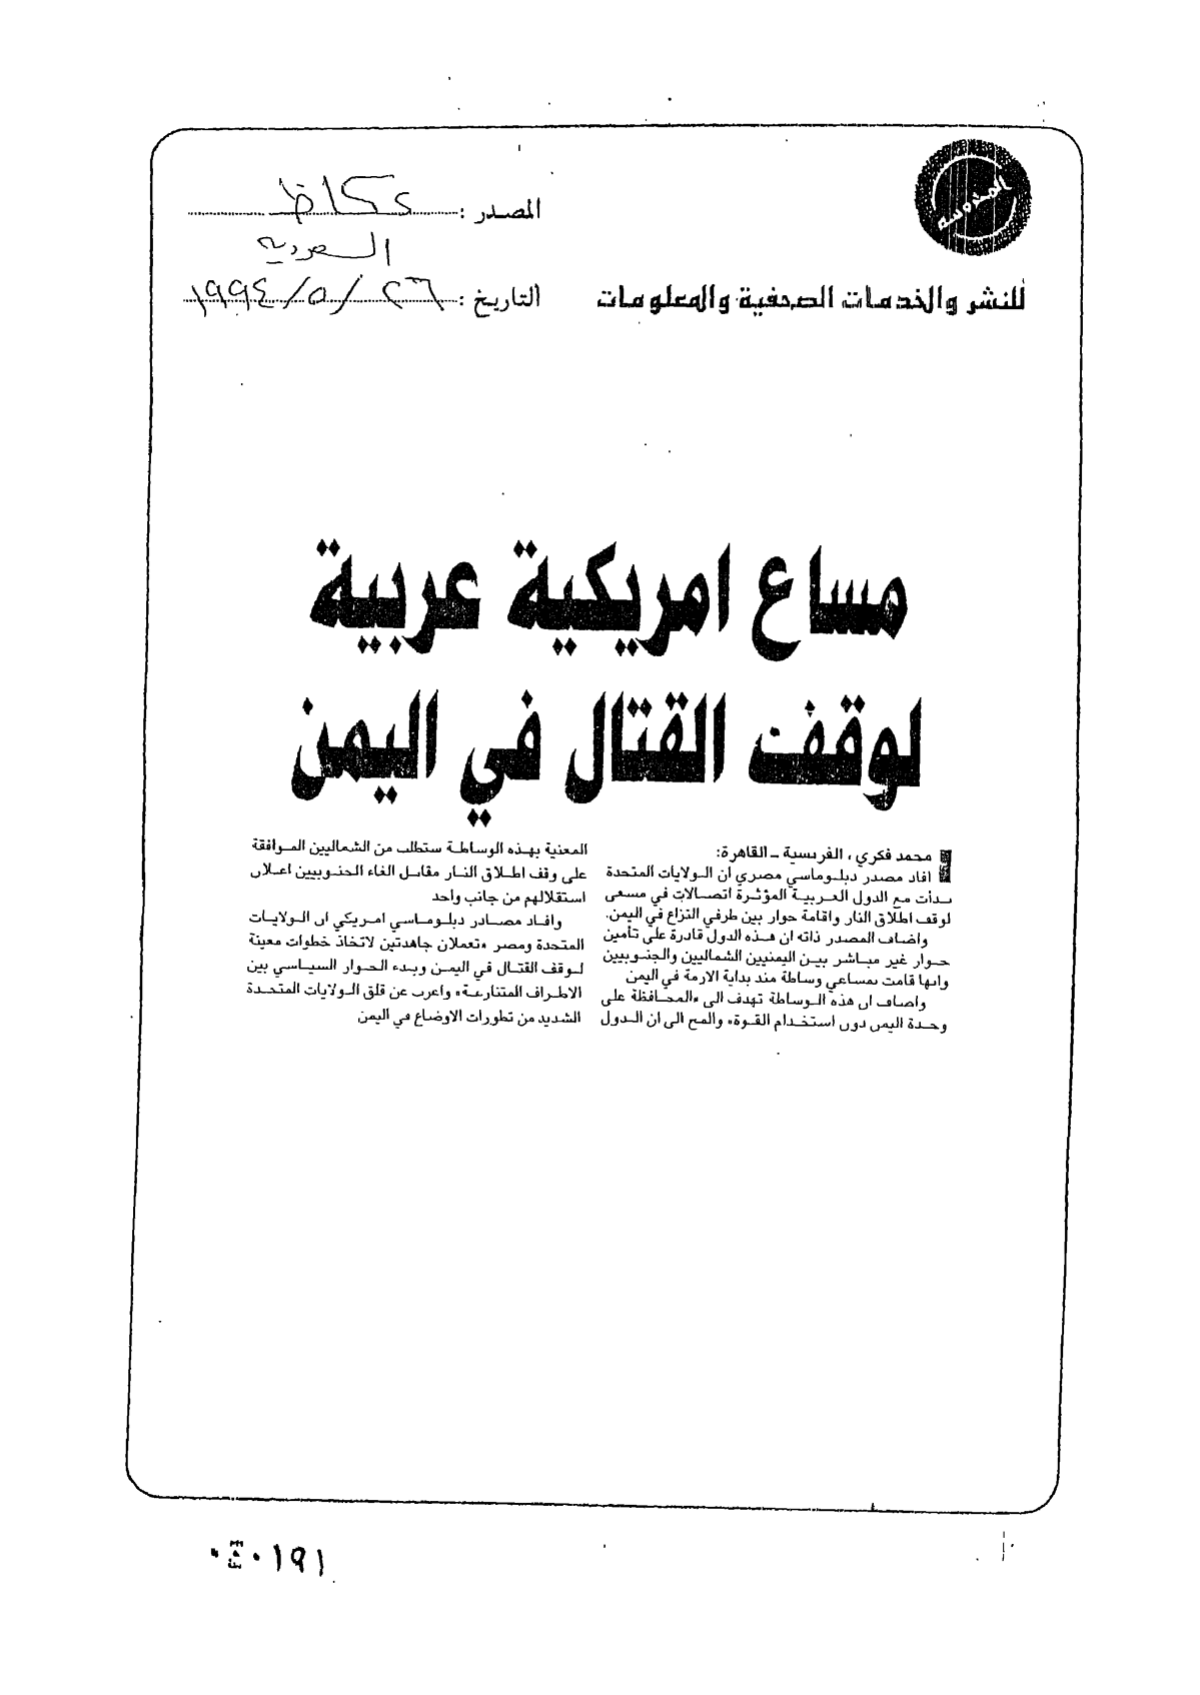 المدوسه
للنشر والخدمات الصحفية والمعلومات
المصدر : عكاظ
السعودية
التاريخ : ٢٦/٥/١٩٩٤
مساع امريكية عربية
لوقف القتال في اليمن
محمد فكري ، الفرنسية ــ القاهرة:
افاد مصدر دبلوماسي مصري ان الولايات المتحدة
بدأت مع الدول العربية المؤثرة اتصالات في مسعى
لوقف اطلاق النار واقامة حوار بين طرفي النزاع في اليمن.
واضاف المصدر ذاته ان هذه الدول قادرة على تأمين
حوار غير مباشر بين اليمنيين الشماليين والجنوبيين
وانها قامت بمساعي وساطة منذ بداية الازمة في اليمن
واضاف ان هذه الوساطة تهدف الى «المحافظة على
وحدة اليمن دون استخدام القوة» والمح الى ان الدول
المعنية بهذه الوساطة ستطلب من الشماليين الموافقة
على وقف اطلاق النار مقابل الغاء الجنوبيين اعلان
استقلالهم من جانب واحد
وافاد مصادر دبلوماسي امريكي ان الولايات
المتحدة ومصر «تعملان جاهدتين لاتخاذ خطوات معينة
لوقف القتال في اليمن وبدء الحوار السياسي بين
الاطراف المتنازعة» واعرب عن قلق الولايات المتحدة
الشديد من تطورات الاوضاع في اليمن